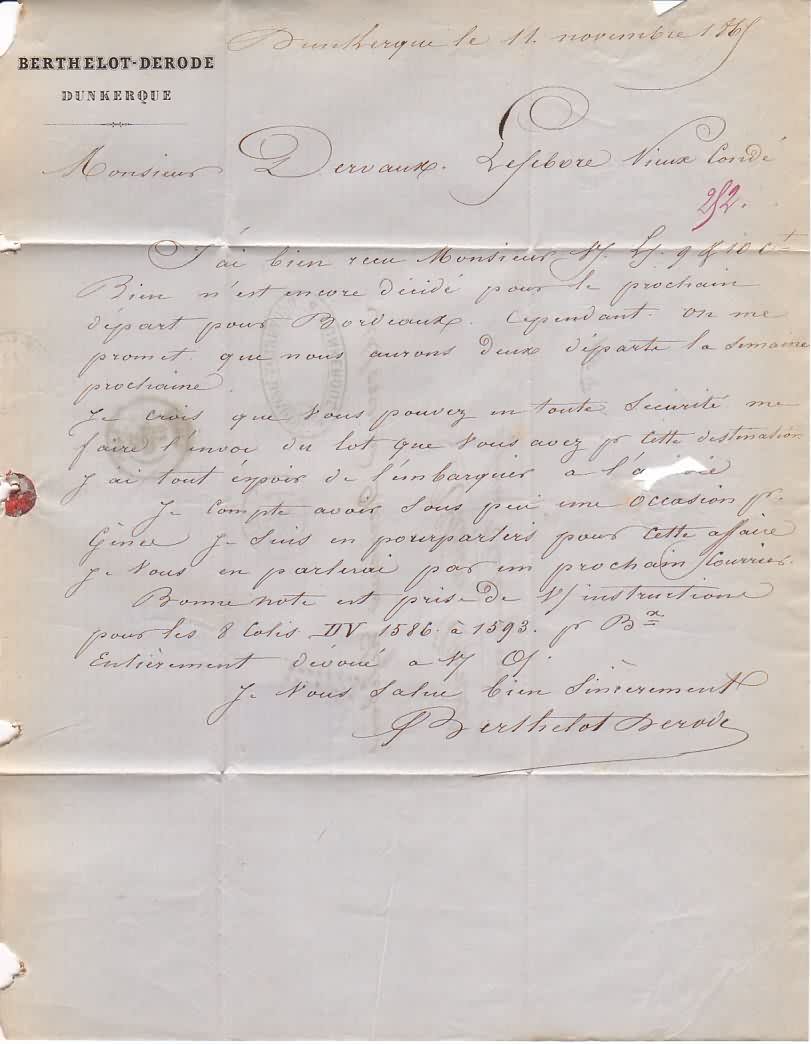 Dunkerque le 11 novembre 1865
BERTHELOT-DERODE
DUNKERQUE
Monsieur Dervaux. Lefebvre Vieux Condé
252.
J'ai bien recu Monsieur V/ L/. 9 & 10 Ct
Rien n'est encore décidé pour le prochain
départ pour Bordeaux. Cependant on me
promet que nous aurons deux départs la semaine
prochaine
Je crois que Vous pouvez en toute Sécurité me
faire l'envoi du lot que Vous avez pr cette destination
J ai tout éspoir de l'embarquer a l'
Je compte avoir Sous peu une occasion pr.
Gênes Je Suis en pourparlers pour cette affaire
Je Vous en parlerai par un prochain Courrier.
Bonne note est prise de V/ instructions
pour les 8 Colis DV 1586 à 1593. pr Bx
Entièrement dévoué a V/ O/.
Je Vous Salue bien Sincèrement
Berthelot Derode